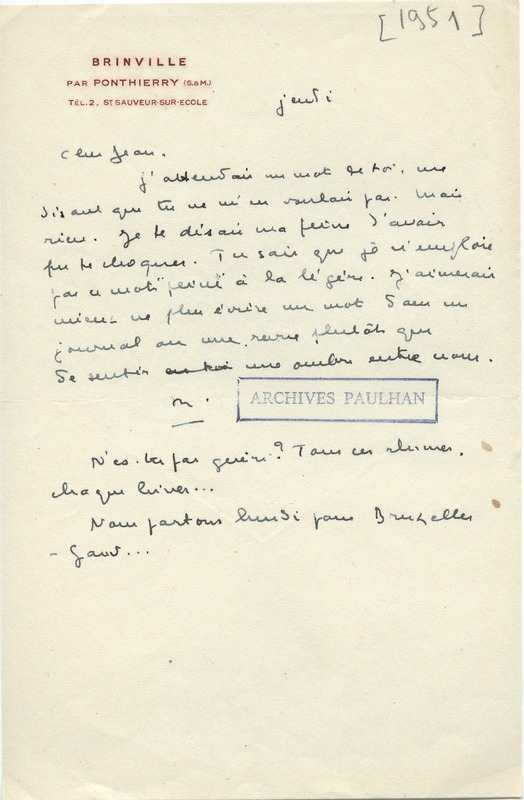 [1951]
BRINVILLE
PAR PONTHIERRY (S.&M.)
TÉL. 2. ST SAUVEUR-SUR-ECOLE
jeudi
cher Jean.
j'attendais un mot de toi, me
disant que tu ne m'en voulais pas. Mais
rien. Je te disais ma peine d'avoir
pu te choquer. Tu sais que je n'emploie
pas ce mot "peine" à la légère. J'aimerais
mieux ne plus écrire un mot dans un
journal ou une revue plutôt que
de sentir une ombre entre nous.
m.
ARCHIVES PAULHAN
N'es-tu pas guéri? Tous ces rhumes,
chaque hiver...
Nous partons lundi pour Bruxelles
- Gand...